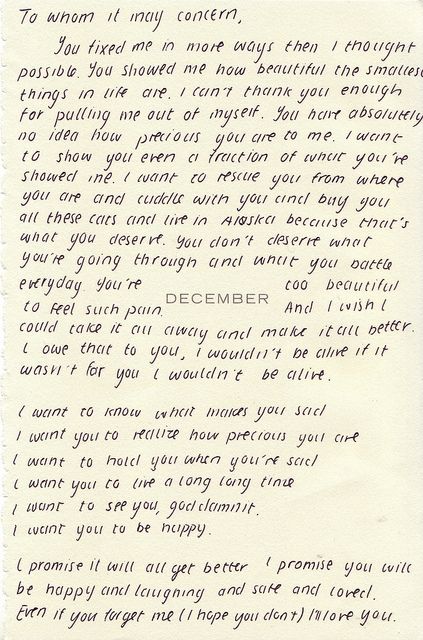 To whom it may concern,
You fixed me in more ways then I thought
possible. You showed me how beautiful the smallest
things in life are. I can't thank you enough
for pulling me out of myself. You have absolutely
no idea how precious you are to me. I want
to show you even a fraction of what you're
showed me. I want to rescue you from where
you are and cuddle with you and buy you
all these cats and live in Alaska because that's
what you deserve. You don't deserve what
you're going through and what you battle
everyday. You're too beautiful
to feel such pain. DECEMBER And I wish I
could take it all away and make it all better.
I owe that to you, I wouldn't be alive if it
wasn't for you I wouldn't be alive.
I want to know what makes you sad
I want you to realize how precious you are
I want to hold you when you're sad
I want you to live a long long time
I want to see you, goddamnit.
I want you to be happy.
I promise it will all get better I promise you will
be happy and laughing and safe and loved.
Even if you forget me (I hope you don't) I'll love you.